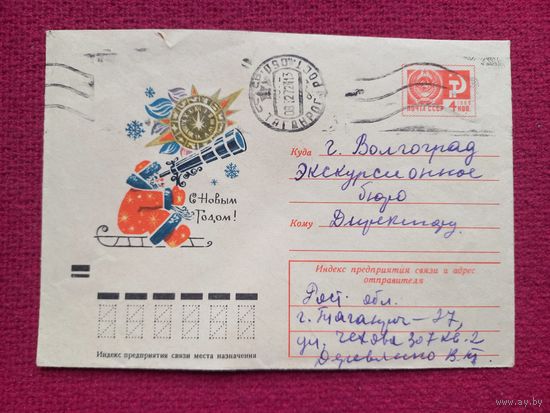 ПОЧТА СССР 4 КОП.
ТАГАНРОГ
С Новым Годом!
Куда г. Волгоград
Экскурсионное
бюро
Кому Директору
Индекс предприятия связи и адрес отправителя
Рост. обл.
г. Таганрог-27,
ул. Чехова 307 кв. 2
Индекс предприятия связи места назначения
www.ay.by